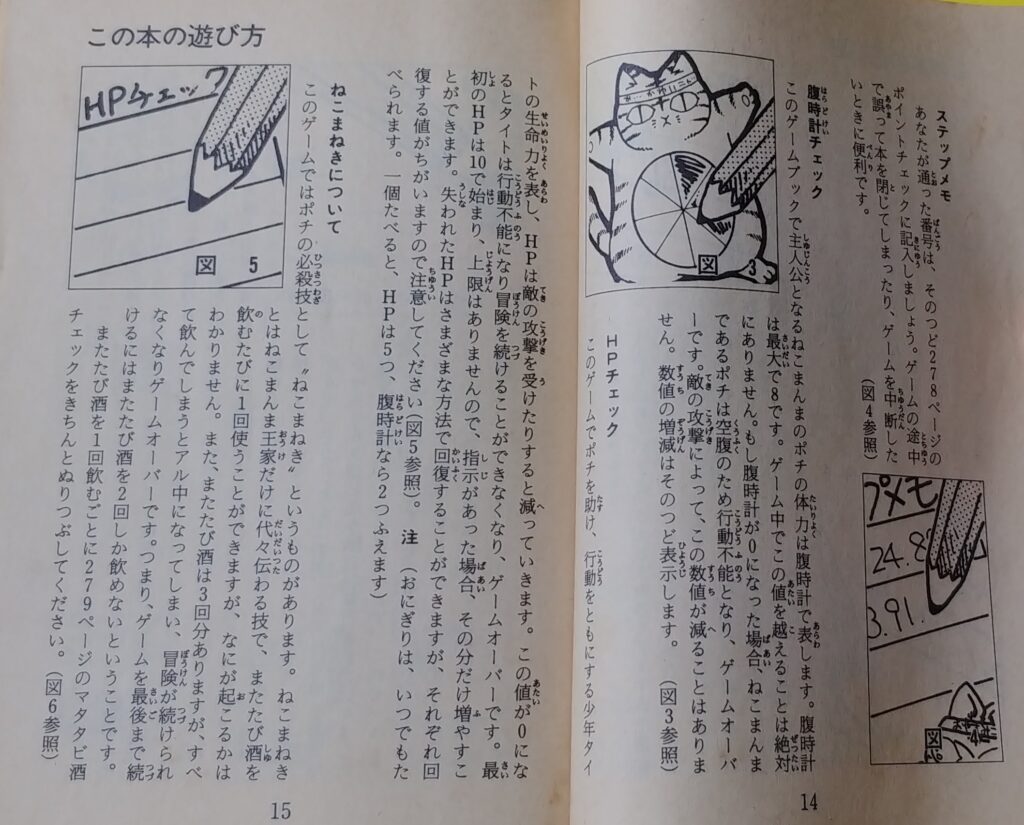 ステップメモ
あなたが通った番号は、そのつど278ページの
ポイントチェックに記入しましょう。ゲームの途中
で誤って本を閉じてしまったり、ゲームを中断した
いときに便利です。
(図4参照)
プメモ
24.8
3.91.
図
腹時計チェック
このゲームブックで主人公となるねこまんまのポチの体力は腹時計で表します。腹時計
は最大で8です。ゲーム中でこの値を越えることは絶対
にありません。もし腹時計が0になった場合、ねこまんま
であるポチは空腹のため行動不能となり、ゲームオーバ
ーです。敵の攻撃によって、この数値が減ることはありま
せん。数値の増減はそのつど表示します。
(図3参照)
図 3
HPチェック
このゲームでポチを助け、行動をともにする少年タイ
14
この本の遊び方
トの生命力を表し、HPは敵の攻撃を受けたりすると減っていきます。この値が0にな
るとタイトは行動不能になり冒険を続けることができなくなり、ゲームオーバーです。最
初のHPは10で始まり、上限はありませんので、指示があった場合、その分だけ増やすこ
とができます。失われたHPはさまざまな方法で回復することができますが、それぞれ回
復する値がちがいますので注意してください(図5参照)。 注 (おにぎりは、いつでもた
べられます。一個たべると、HPは5つ、腹時計なら2つふえます)
HPチェック
図 5
ねこまねきについて
このゲームではポチの必殺技として〝ねこまねき〟というものがあります。ねこまねき
とはねこまんま王家だけに代々伝わる技で、またたび酒を
飲むたびに1回使うことができますが、なにが起こるかは
わかりません。また、またたび酒は3回分ありますが、すべ
て飲んでしまうとアル中になってしまい、冒険が続けられ
なくなりゲームオーバーです。つまり、ゲームを最後まで続
けるにはまたたび酒を2回しか飲めないということです。
またたび酒を1回飲むごとに279ページのマタタビ酒
チェックをきちんとぬりつぶしてください。(図6参照)
15